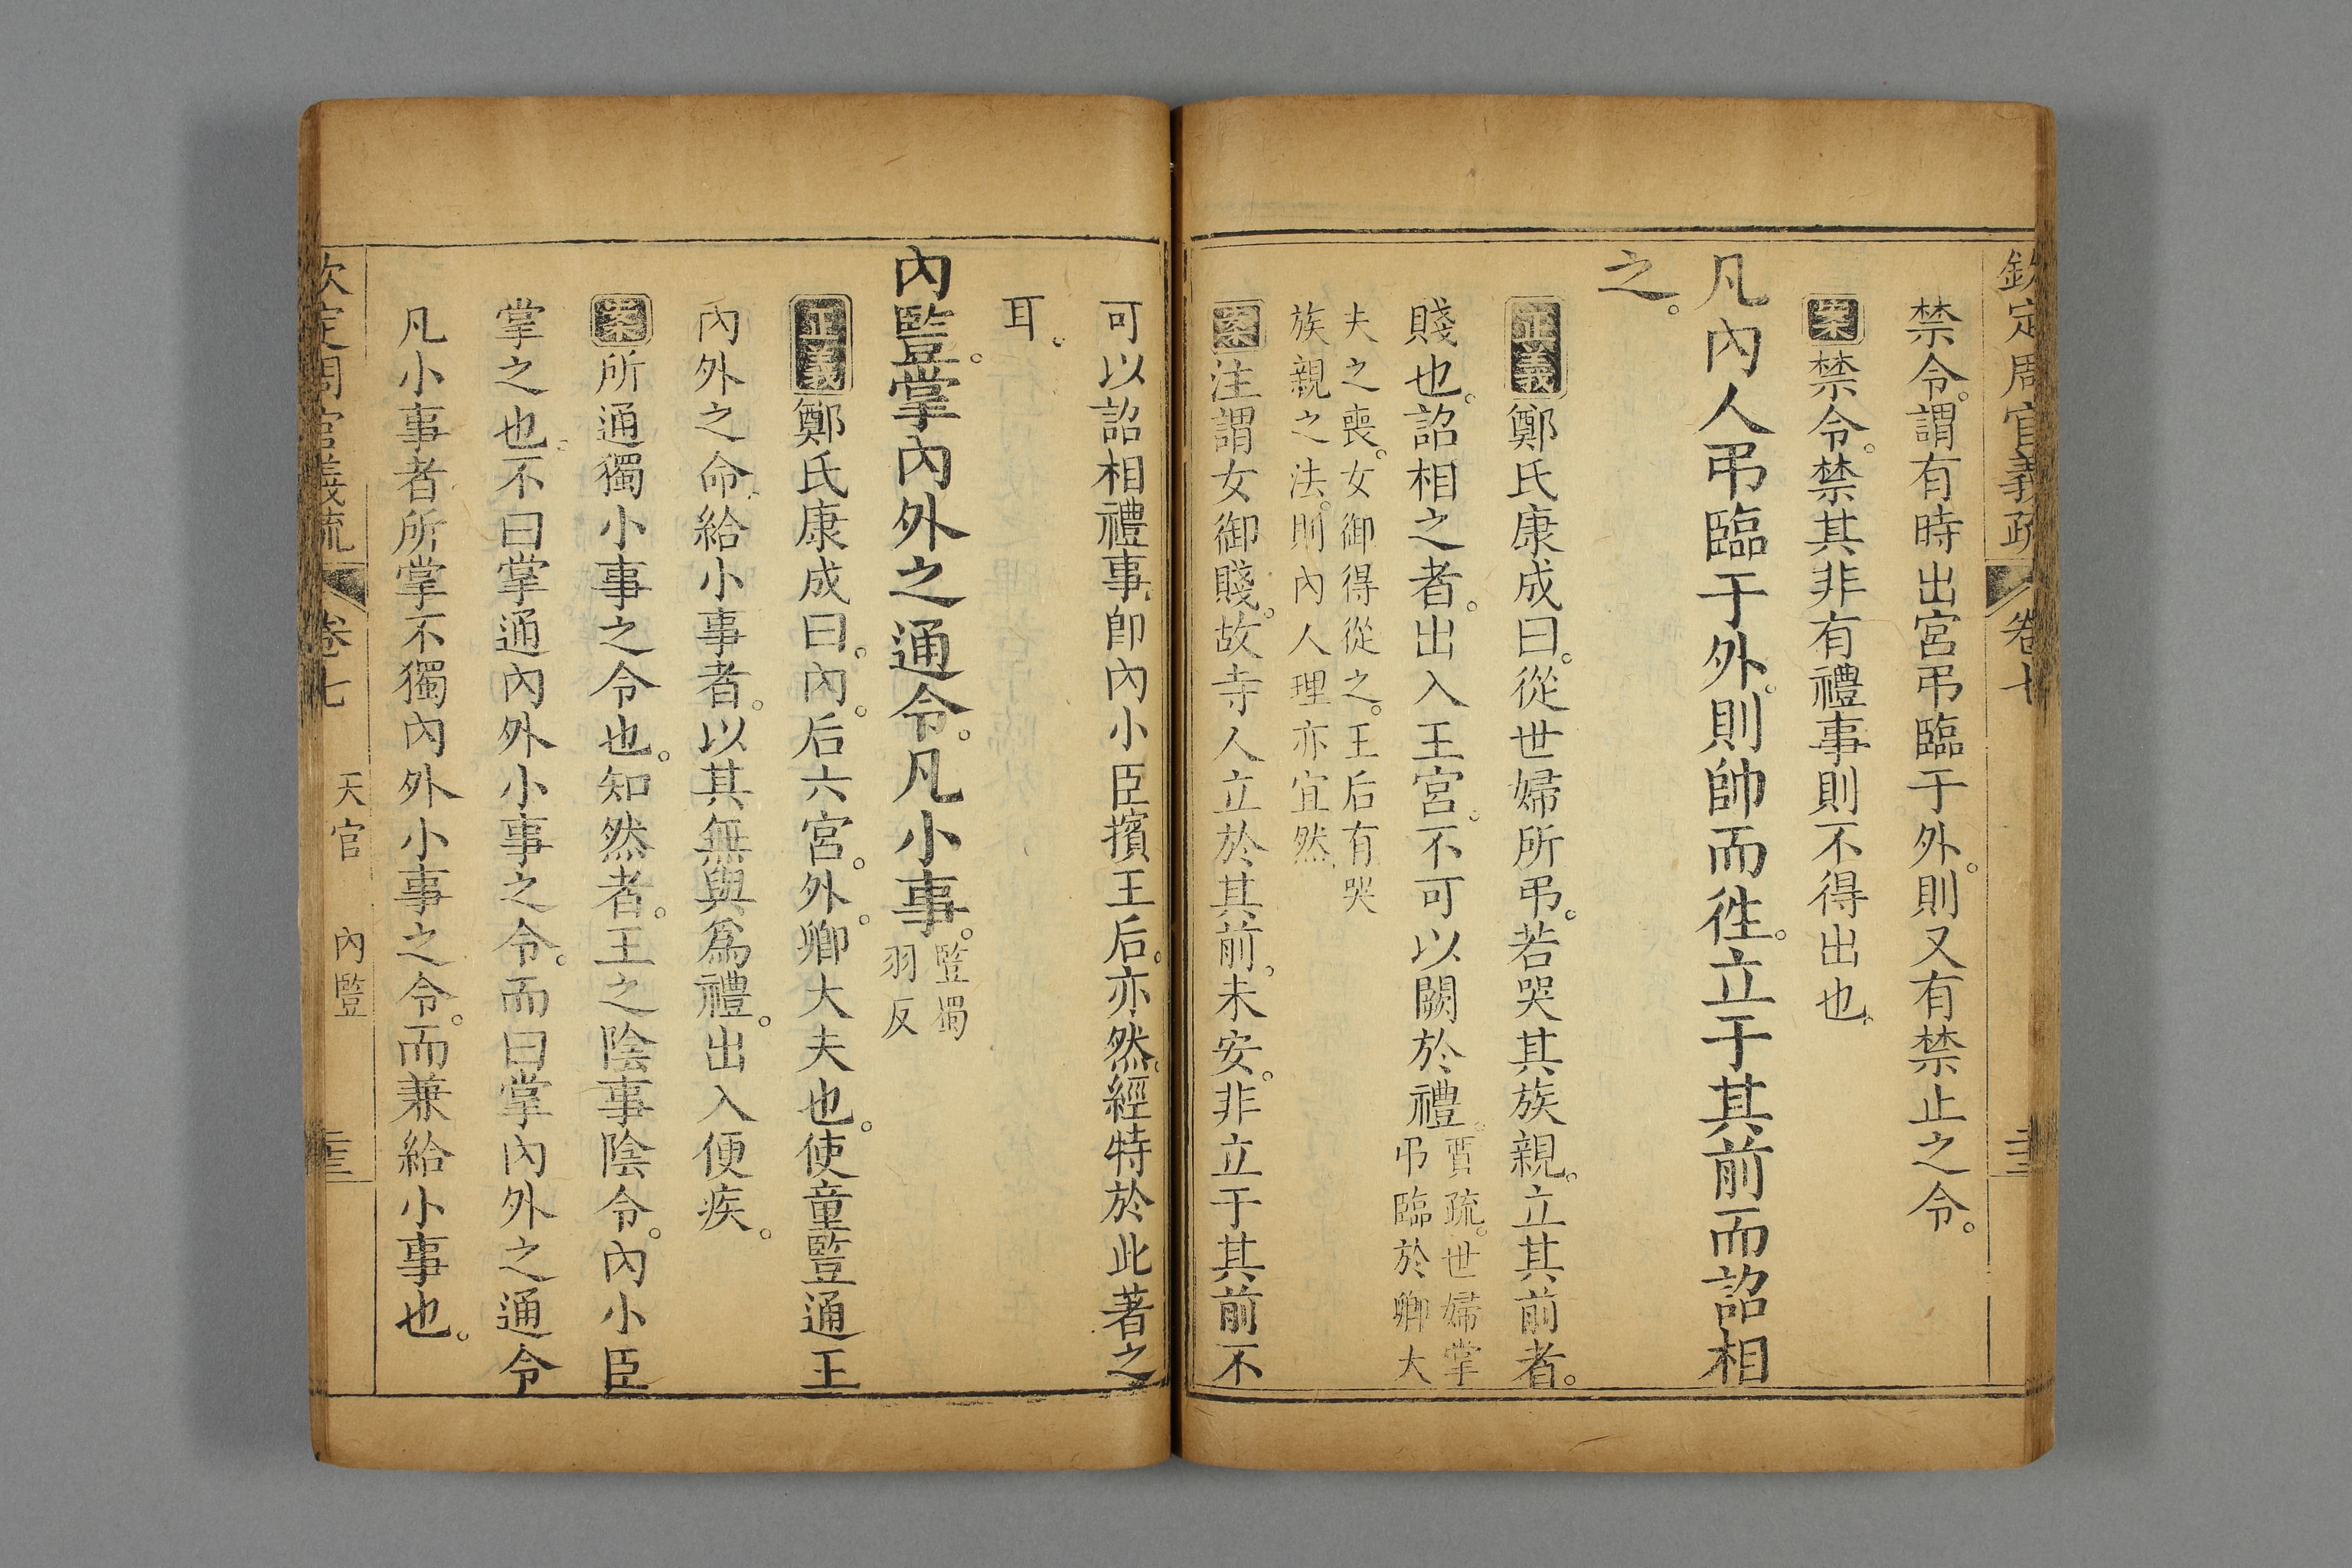 欽定周官義疏 卷七
禁令。謂有時出宮弔臨于外。則又有禁止之令。
案禁令。禁其非有禮事則不得出也。
凡內人弔臨于外。則帥而徃。立于其前而詔相
之。
正義鄭氏康成曰。從世婦所弔。若哭其族親。立其前者。
賤也。詔相之者。出入王宮。不可以闕於禮。賈疏。世婦掌
弔臨於卿大
夫之喪。女御得從之。王后有哭
族親之法。則內人理亦宜然。
案注謂女御賤。故寺人立於其前。未安。非立于其前不
可以詔相禮事。卽內小臣擯王后。亦然。經特於此著之
耳。
內豎。掌內外之通令。凡小事。豎獨
羽反
正義鄭氏康成曰。內。后六宮。外。卿大夫也。使童豎通王
內外之命。給小事者。以其無與爲禮。出入便疾。
案所通獨小事之令也。知然者。王之陰事陰令。內小臣
掌之也。不曰掌通內外小事之令。而曰掌內外之通令
凡小事者所掌不獨內外小事之令。而兼給小事也。
欽定周官義疏 卷七 天官 內豎